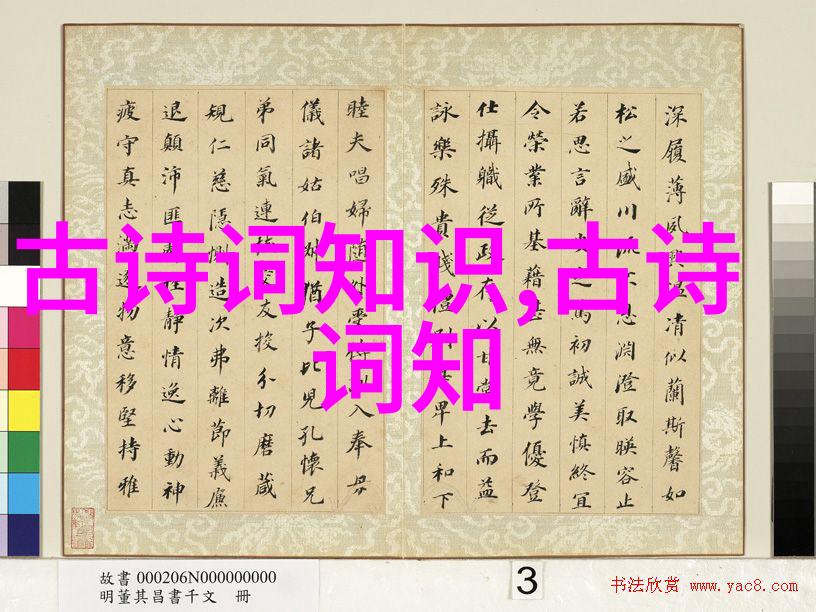 古诗词知识,古诗
词知
深履薄夙興温凊似蘭斯馨如
松之盛川流不息淵澄取暎容止
若思言辭初誠美慎終宜
令榮業所基藉甚無竟學優登
仕攝職從政存以甘棠去而益
詠樂殊貴賤禮別卑上和下
睦夫唱婦隨外受入奉母
儀諸姑伯叔猶子比兒孔懷兄
弟同氣連枝交友投分切磨箴
規仁慈隱惻造次弗離節義廉
退顛沛匪性靜情逸心動神
疲守真志滿逐物意移堅持雅
故書 000206N000000000
明董其昌書千文 冊
3
书法欣赏 www.yac8.com